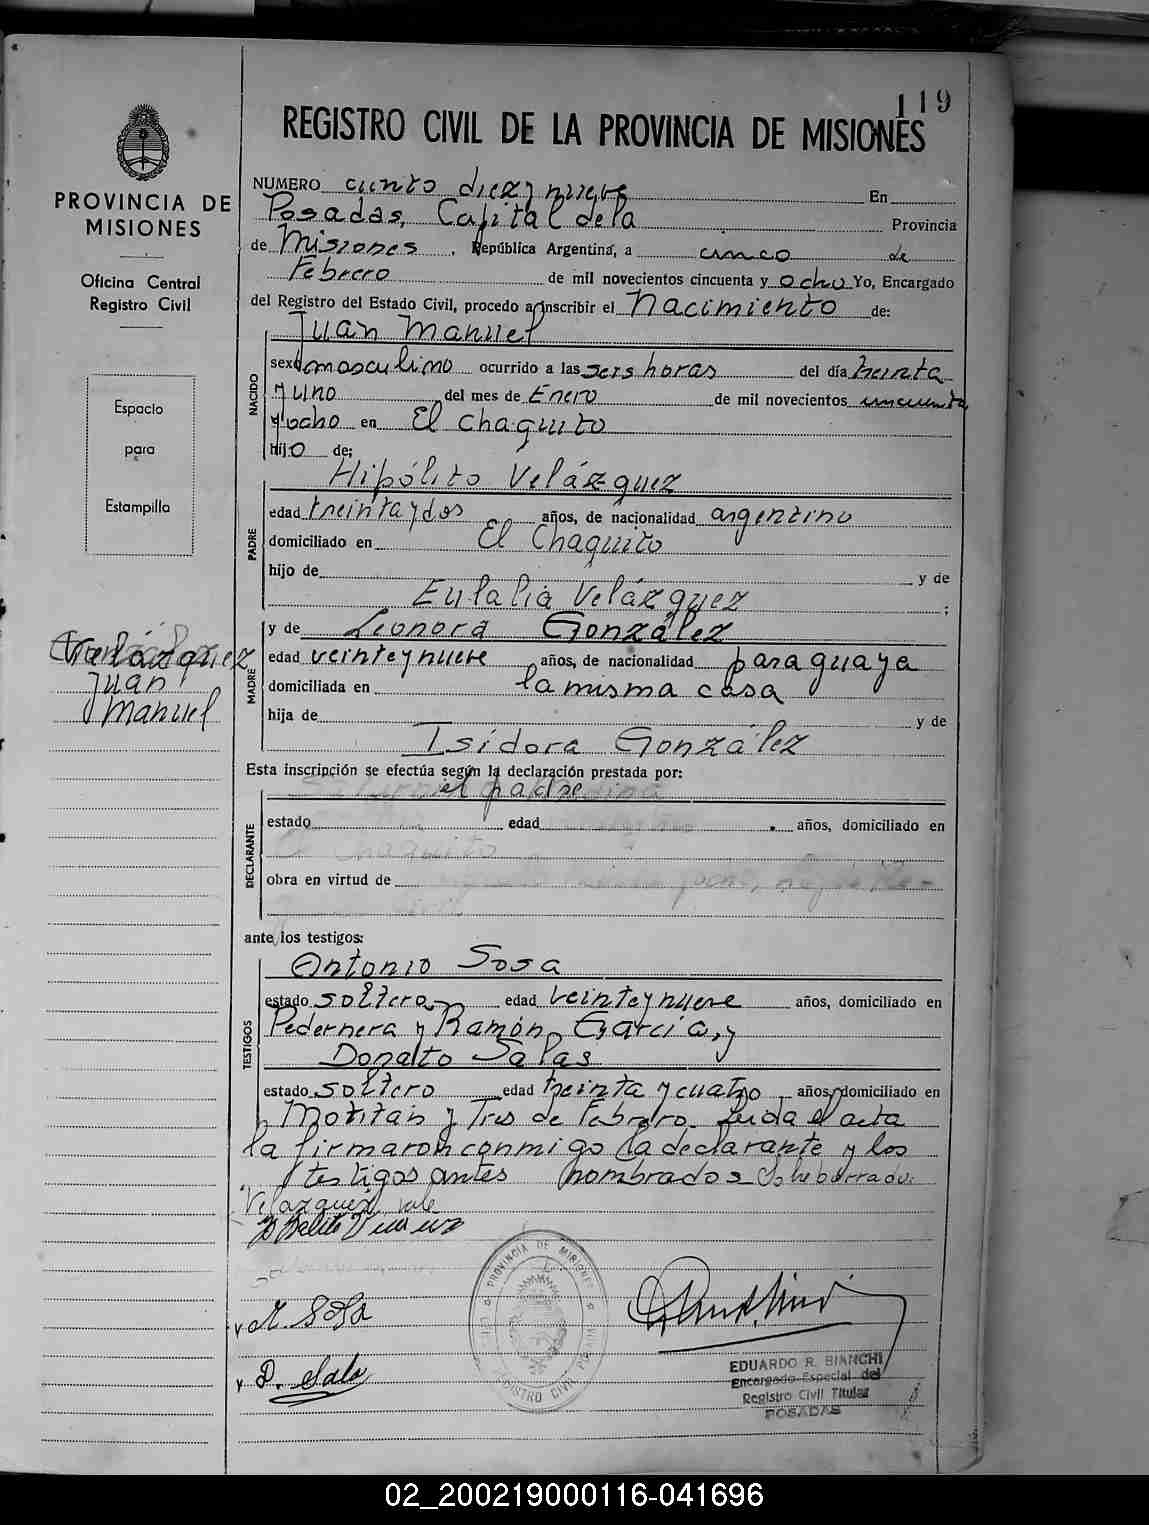 119
REGISTRO CIVIL DE LA PROVINCIA DE MISIONES
PROVINCIA DE
MISIONES
Oficina Central
Registro Civil
Espacio
para
Estampilla
Velázquez
Juan
Manuel
NUMERO ciento diez y nueve En
Posadas, Capital de la Provincia
de Misiones, República Argentina, a cinco de
Febrero de mil novecientos cincuenta y ocho Yo, Encargado
del Registro del Estado Civil, procedo a inscribir el Nacimiento de:
Juan Manuel
NACIDO
sexo masculino ocurrido a las seis horas del día treinta
y uno del mes de Enero de mil novecientos cincuenta
y ocho en El Chaquito
hijo de;
Hipólito Velázquez
PADRE
edad treinta y dos años, de nacionalidad argentino
domiciliado en El Chaquito
hijo de y de
Eulalia Velázquez ;
y de Leonora González
MADRE
edad veinte y nueve años, de nacionalidad paraguaya
domiciliada en la misma casa
hija de y de
Isidora González
Esta inscripción se efectúa según la declaración prestada por:
el padre
DECLARANTE
estado edad años, domiciliado en
El Chaquito
obra en virtud de
ante los testigos:
Antonio Sosa
TESTIGOS
estado soltero edad veinte y nueve años, domiciliado en
Pedernera y Ramón García, y
Donato Salas
estado soltero edad treinta y cuatro años, domiciliado en
y Tres de Febrero. Leida el acta
la firmaron conmigo la declarante y los
testigos antes nombrados Sobreborrado:
Velazquez, vale
y A. Sosa
y D. Sala
PROVINCIA DE MISIONES
REGISTRO CIVIL
EDUARDO R. BIANCHI
Encargado Especial del
Registro Civil Titular
POSADAS
02_200219000116-041696